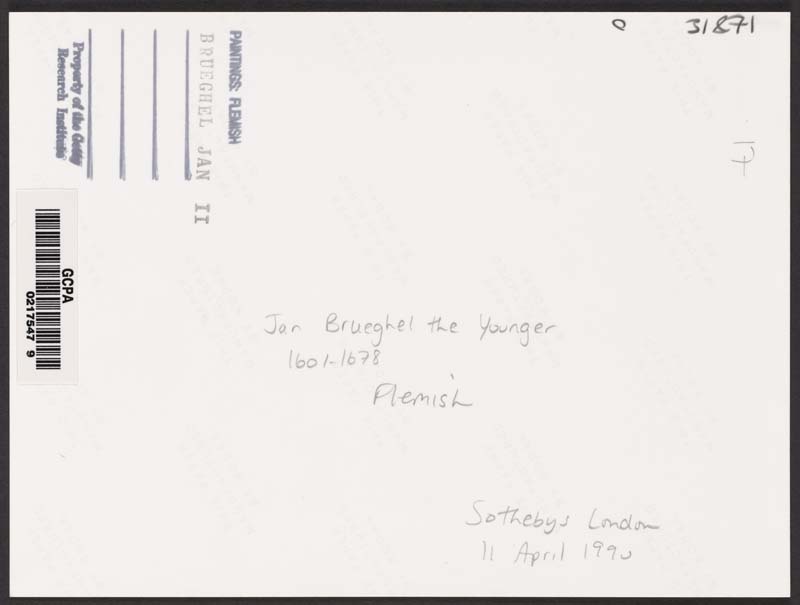 O
31871
17
PAINTINGS: FLEMISH
BRUEGHEL JAN II
Property of the Getty
Research Institute
GCPA
0217547 9
Jan Brueghel the Younger
1601-1678
Flemish
Sothebys London
11 April 1990